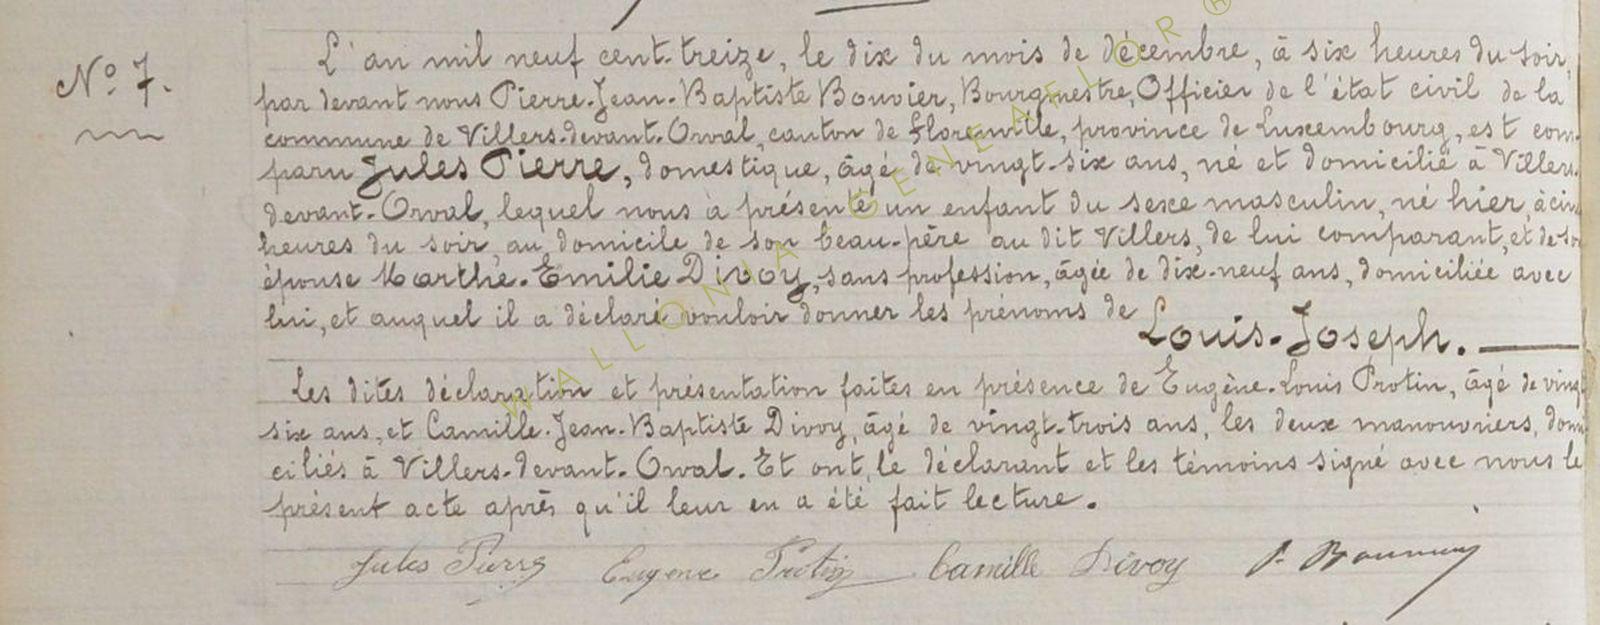 N° 7.
L'an mil neuf cent-treize, le dix du mois de décembre, à six heures du soir,
par devant nous Pierre-Jean-Baptiste Bouvier, Bourgmestre, Officier de l'état civil de la
commune de Villers-devant-Orval, canton de Florenville, province de Luxembourg, est com-
paru Jules Pierre, domestique, âgé de vingt-six ans, né et domicilié à Villers-
devant-Orval, lequel nous a présenté un enfant du sexe masculin, né hier, à cinq
heures du soir, au domicile de son beau-père au dit Villers, de lui comparant, et de son
épouse Marthe-Emilie Divoy, sans profession, âgée de dix-neuf ans, domiciliée avec
lui, et auquel il a déclaré vouloir donner les prénoms de
Louis-Joseph.
Les dites déclaration et présentation faites en présence de Eugène-Louis Protin, âgé de vingt
six ans, et Camille-Jean-Baptiste Divoy, âgé de vingt-trois ans, les deux manouvriers, domi
ciliés à Villers-devant-Orval. Et ont, le déclarant et les témoins signé avec nous le
présent acte après qu'il leur en a été fait lecture.
Jules Pierre Eugène Protin Camille Divoy P. Bouvier
WALLONIA GENEALOR®